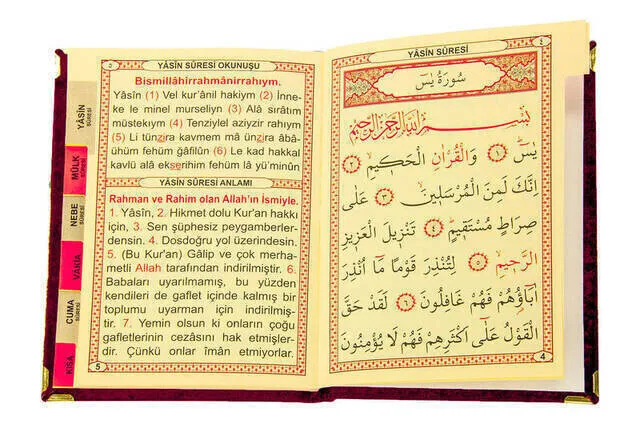 ٤
YÂSÎN SÛRESİ
سُورَةُ يٰسٓ
بِسْمِ اللّٰهِ الرَّحْمٰنِ الرَّحِيمِ
يٰسٓ ﴿١﴾ وَالْقُرْاٰنِ الْحَكِيمِ ﴿٢﴾
اِنَّكَ لَمِنَ الْمُرْسَلِينَ ﴿٣﴾ عَلٰى
صِرَاطٍ مُسْتَقِيمٍ ﴿٤﴾ تَنْزِيلَ الْعَزِيزِ
الرَّحِيمِ ﴿٥﴾ لِتُنْذِرَ قَوْمًا مَٓا اُنْذِرَ
اٰبَٓاؤُ۬هُمْ فَهُمْ غَافِلُونَ ﴿٦﴾ لَقَدْ حَقَّ
الْقَوْلُ عَلٰٓى اَكْثَرِهِمْ فَهُمْ لَا يُؤْمِنُونَ
4
٥
YÂSÎN SÛRESİ OKUNUŞU
Bismillâhirrahmânirrahıym.
Yâsîn (1) Vel kur'ânil hakiym (2) İnne-
ke le minel murseliyn (3) Alâ sırâtım
müstekıym (4) Tenziylel aziyzir rahıym
(5) Li tünzira kavmem mâ ünzira âbâ-
ühüm fehüm ğafilûn (6) Le kad hakkal
kavlü alâ ekserihim fehüm lâ yü'minûn
YÂSÎN SÛRESİ ANLAMI
Rahman ve Rahim olan Allah'ın İsmiyle.
1. Yâsîn, 2. Hikmet dolu Kur'an hakkı
için, 3. Sen şüphesiz peygamberler-
densin. 4. Dosdoğru yol üzerindesin.
5. (Bu Kur'an) Gâlip ve çok merha-
metli Allah tarafından indirilmiştir. 6.
Babaları uyarılmamış, bu yüzden
kendileri de gaflet içinde kalmış bir
toplumu uyarman için indirilmiş-
tir. 7. Yemin olsun ki onların çoğu
gafletlerinin cezasını hak etmişler-
dir. Çünkü onlar îmân etmiyorlar.
5
YÂSÎN
SÛRESİ
MÜLK
SÛRESİ
NEBE
SÛRESİ
VÂKIA
CUMA
SÛRESİ
KISA